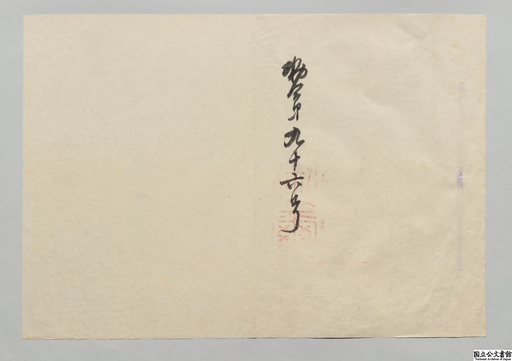 勅令第九十六号
国立公文書館
National Archives of Japan